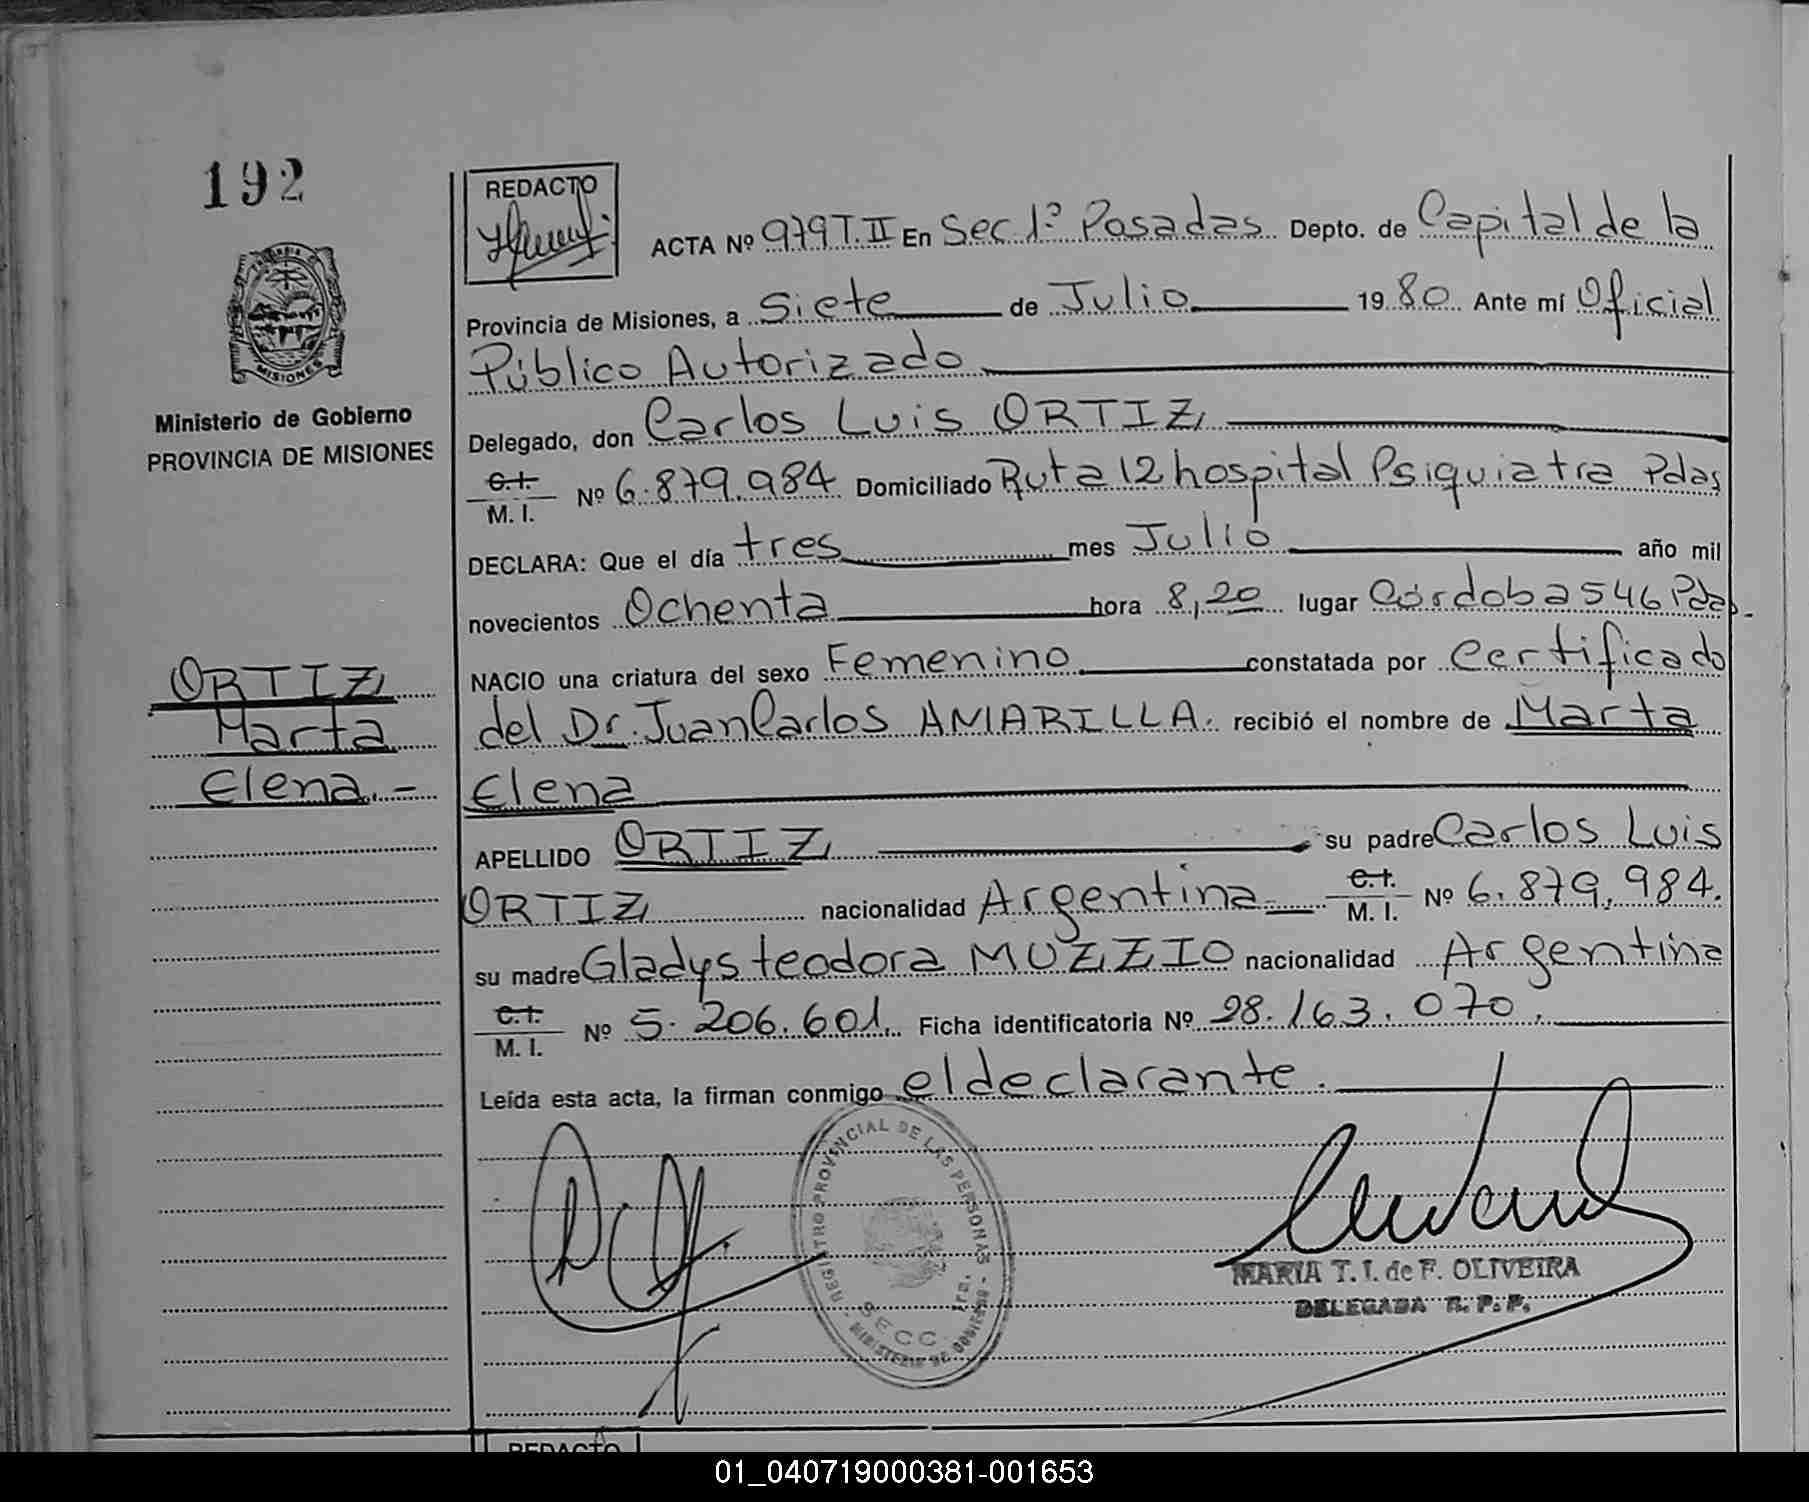 192
REDACTO
ACTA Nº 979 T. II En Sec. 1ª Posadas Depto. de Capital de la
Provincia de Misiones, a Siete de Julio 1980. Ante mí Oficial
Público Autorizado
MISIONES
Ministerio de Gobierno
PROVINCIA DE MISIONES
Delegado, don Carlos Luis ORTIZ
C.I.
M. I. Nº 6.879.984 Domiciliado Ruta 12 hospital Psiquiatra Pdas
DECLARA: Que el día tres mes Julio año mil
novecientos Ochenta hora 8,20 lugar Córdoba 546 Pdas.
NACIO una criatura del sexo Femenino constatada por Certificado
del Dr. Juan Carlos AMARILLA. recibió el nombre de Marta
Elena
ORTIZ
Marta
Elena.-
APELLIDO ORTIZ su padre Carlos Luis
ORTIZ nacionalidad Argentina C.I.
M. I. Nº 6.879.984.
su madre Gladys teodora MUZZIO nacionalidad Argentina
C.I.
M. I. Nº 5.206.601. Ficha identificatoria Nº 28.163.070.
Leída esta acta, la firman conmigo el declarante.
REGISTRO PROVINCIAL DE LAS PERSONAS - MINISTERIO DE GOBIERNO -
SECC. 1ra.
MARIA T. I. de F. OLIVEIRA
DELEGADA R. P. P.
REDACTO
01_040719000381-001653